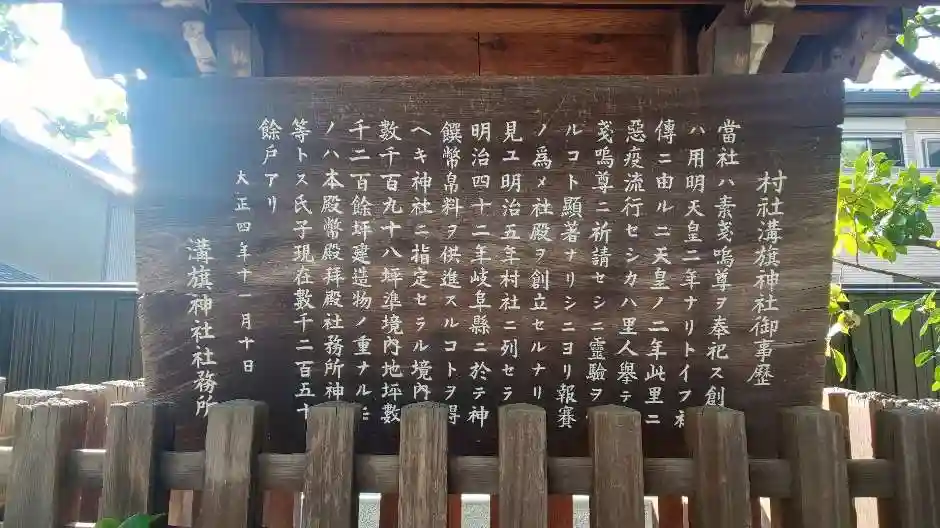 村社溝旗神社御事歴
當社ハ素戔嗚尊ヲ奉祀ス創
ハ用明天皇二年ナリトイフ社
傳ニ由ルニ天皇ノ二年此里ニ
惡疫流行セシカハ里人擧テ
戔嗚尊ニ祈請セシニ靈驗ヲ
ルコト顯著ナリシニヨリ報賽
ノ爲メ社殿ヲ創立セルナリ
見ユ明治五年村社ニ列セラ
明治四十二年岐阜縣ニ於テ神
饌幣帛料ヲ供進スルコトヲ得
ヘキ神社ニ指定セラル境内
數千百九十八坪準境内地坪數
千二百餘坪建造物ノ重ナルモ
ノハ本殿幣殿拜殿社務所神
等トス氏子現在數千二百五十
餘戸アリ
大正四年十一月十日
溝旗神社社務所